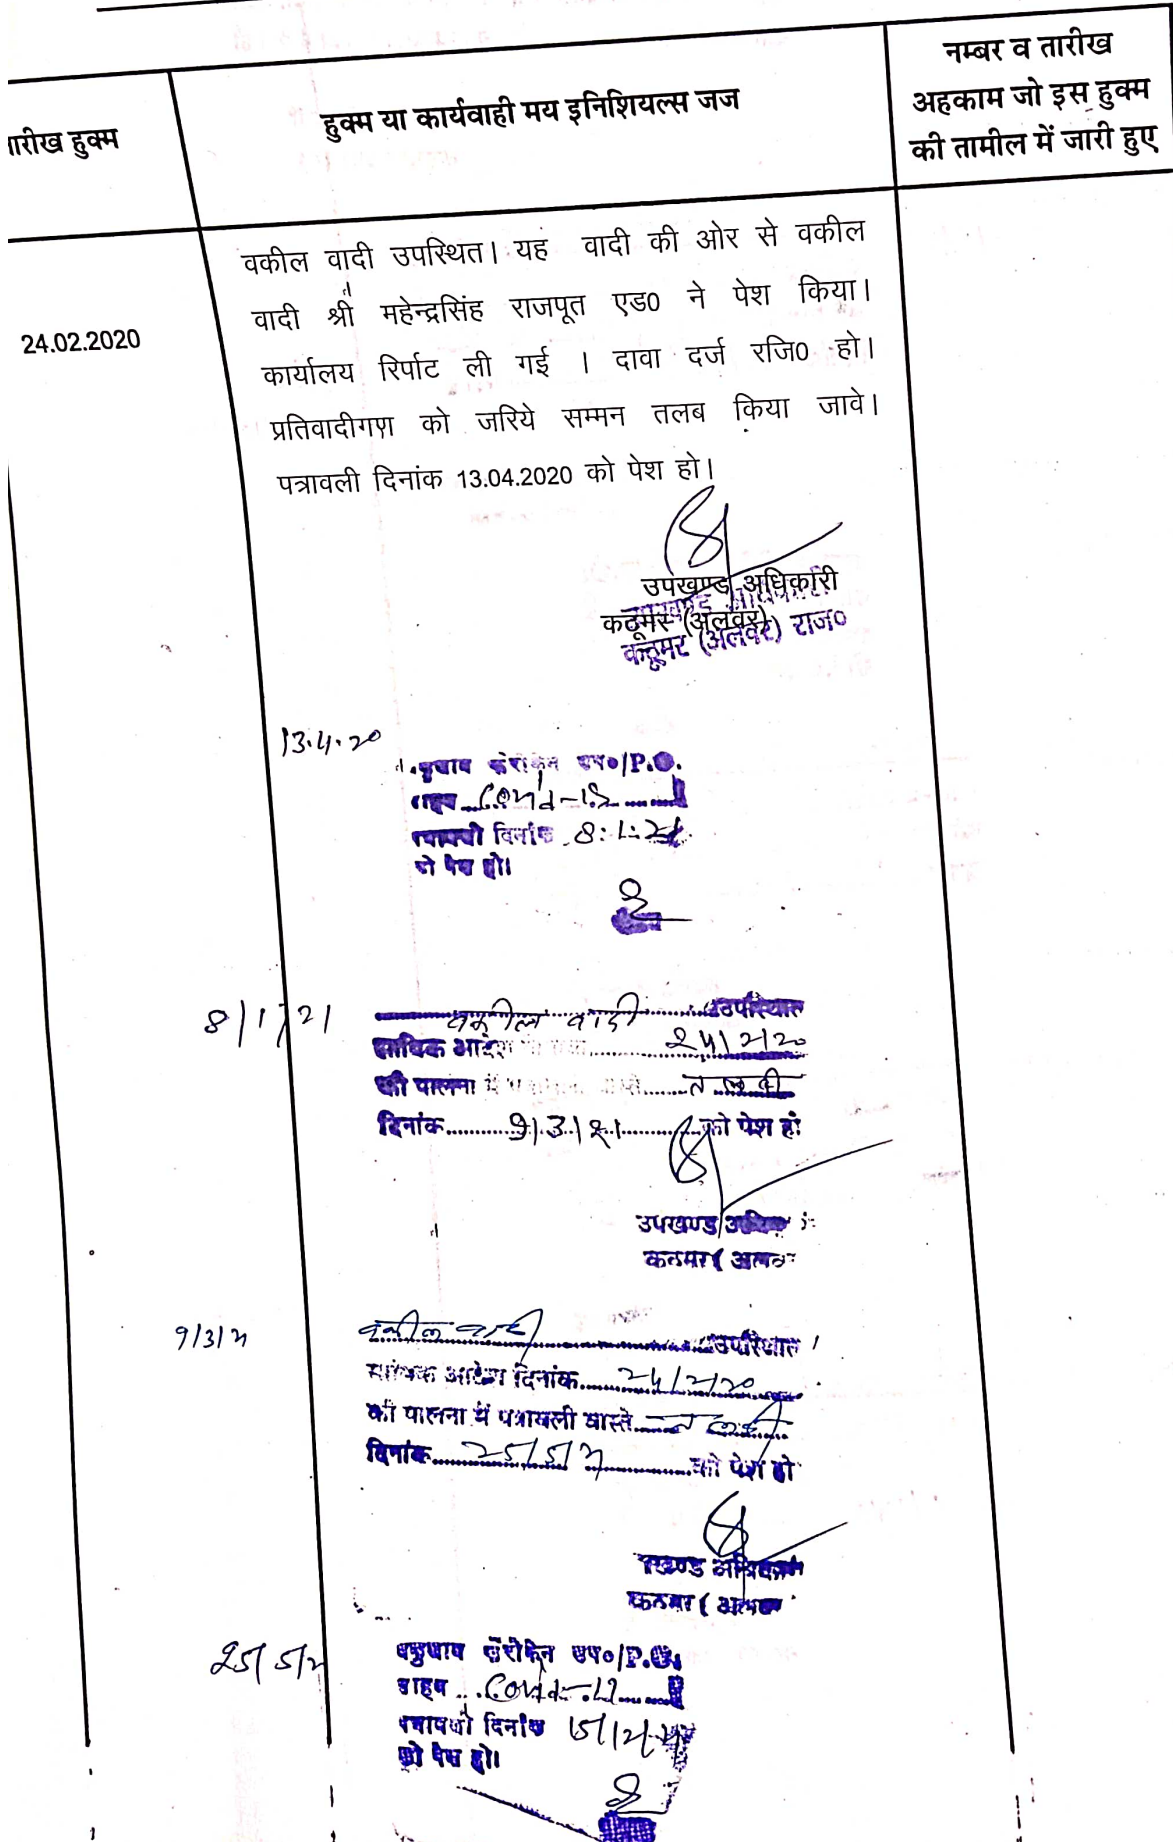 तारीख हुक्म
हुक्म या कार्यवाही मय इनिशियल्स जज
नम्बर व तारीख
अहकाम जो इस हुक्म
की तामील में जारी हुए
24.02.2020
वकील वादी उपस्थित। यह वादी की ओर से वकील
वादी श्री महेन्द्रसिंह राजपूत एड0 ने पेश किया।
कार्यालय रिर्पाट ली गई । दावा दर्ज रजि0 हो।
प्रतिवादीगण को जरिये सम्मन तलब किया जावे।
पत्रावली दिनांक 13.04.2020 को पेश हो।
उपखण्ड अधिकारी
कठूमर (अलवर)
कठूमर (अलवर) राज०
13.4.20
P.O.
Covid-19
दिनांक 8.1.21
को पेश हो।
8/1/21
वकील वादी उपस्थित
साबिक आदेश 24/2/20
की पालना में तलबी
दिनांक 9/3/21 को पेश हो
उपखण्ड
कठूमर (अलव
9/3/21
वकील वादी उपस्थित
साबिक आदेश दिनांक 24/2/20
की पालना में पत्रावली वास्ते तलबी
दिनांक 25/5/21 को पेश हो
खण्ड अधिकारी
कठूमर (अलवर
25/5/21
P.O.
Covid-19
पत्रावली दिनांक
को पेश हो।